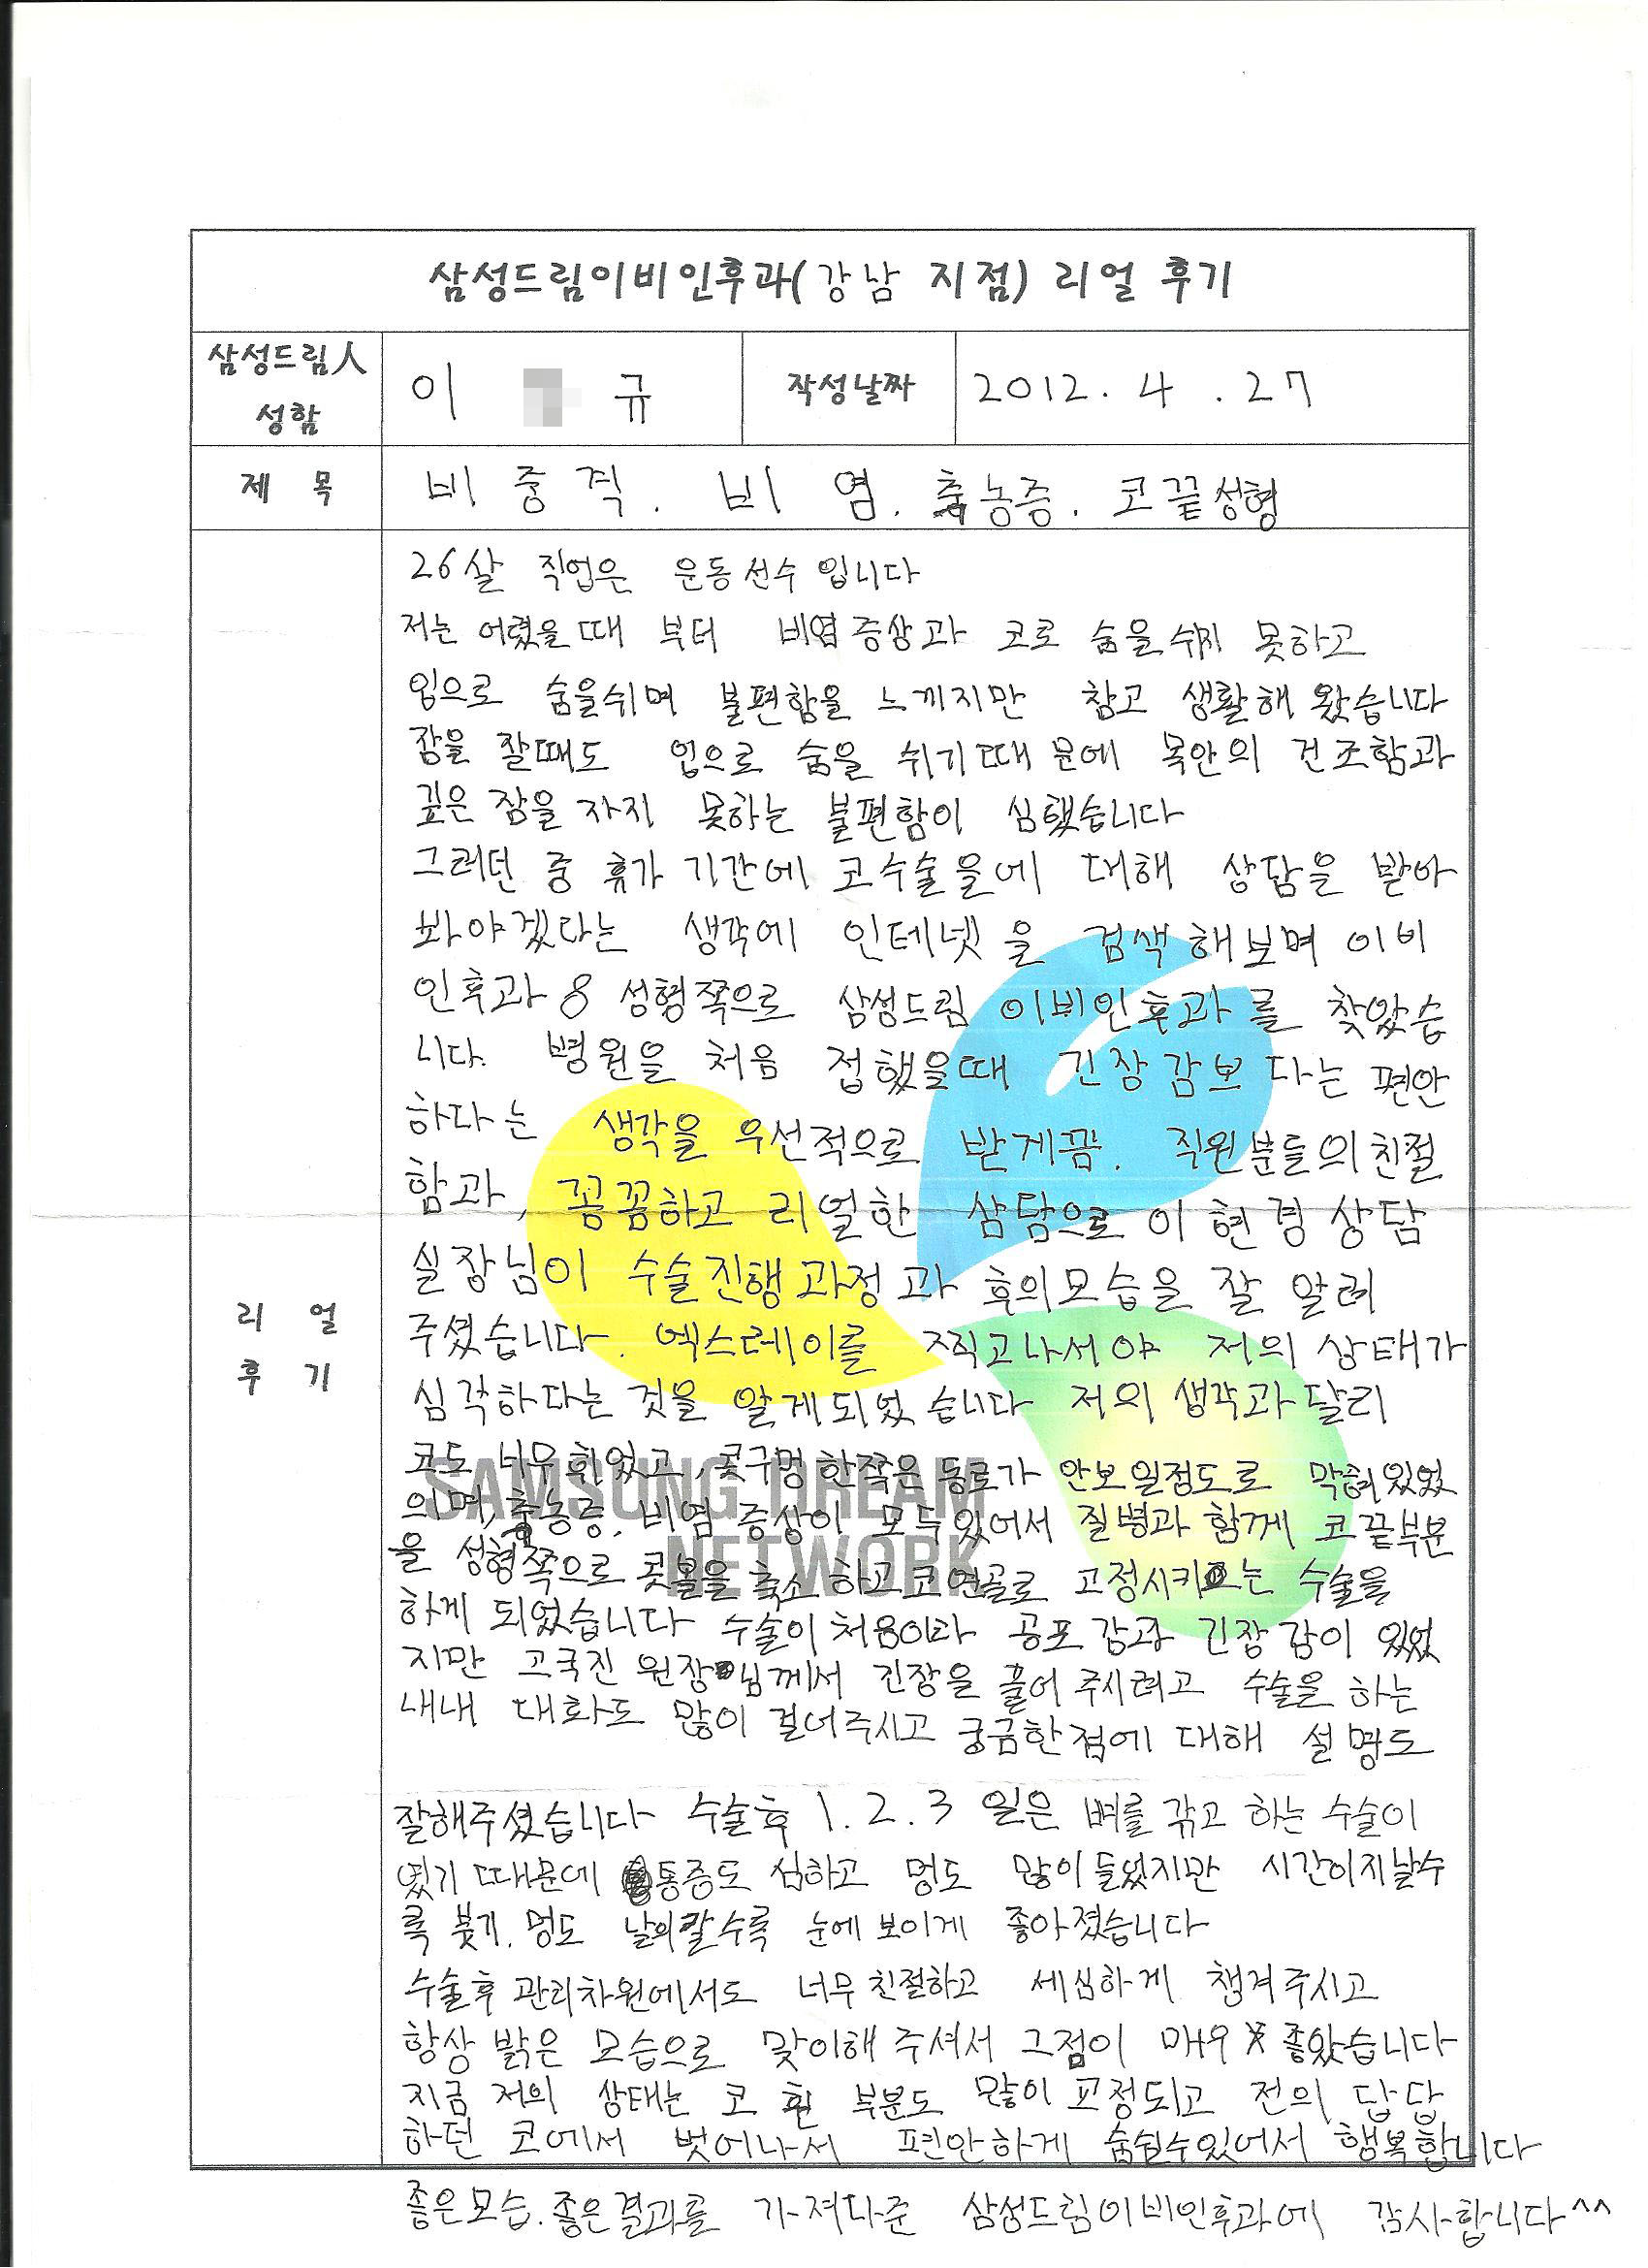 삼성드림이비인후과(강남 지점) 리얼 후기
삼성드림人 성함
이 규
작성날짜
2012. 4. 27
제 목
비중격. 비염. 축농증. 코끝성형
리얼 후기
26살 직업은 운동선수 입니다
저는 어렸을때 부터 비염증상과 코로 숨을쉬지 못하고
입으로 숨을쉬며 불편함을 느끼지만 참고 생활해 왔습니다
잠을 잘때도 입으로 숨을 쉬기때문에 목안의 건조함과
깊은 잠을 자지 못하는 불편함이 심했습니다
그러던 중 휴가 기간에 코수술을에 대해 상담을 받아
봐야겠다는 생각에 인테넷을 검색해보며 이비
인후과 & 성형쪽으로 삼성드림 이비인후과를 찾았습
니다. 병원을 처음 접했을때 긴장감보다는 편안
하다는 생각을 우선적으로 받게끔. 직원분들의 친절
함과, 꼼꼼하고 리얼한 상담으로 이현경 상담
실장님이 수술진행과정과 후의모습을 잘 알려
주셨습니다. 엑스레이를 찍고나서야 저의 상태가
심각하다는 것을 알게되었습니다 저의 생각과 달리
코도 너무휘었고, 콧구멍 한쪽은 통로가 안보일정도로 막혀있었
으며, 축농증. 비염 증상이 모두있어서 질병과 함께 코끝부분
을 성형쪽으로 콧볼을 축소하고 코연골로 고정시키는 수술을
하게 되었습니다 수술이 처음이라 공포감과 긴장감이 있었
지만 고국진 원장님께서 긴장을 풀어 주시려고 수술을 하는
내내 대화도 많이 걸어주시고 궁금한점에 대해 설명도
잘해주셨습니다 수술후 1. 2. 3 일은 뼈를 깎고 하는 수술이
였기 때문에 통증도 심하고 멍도 많이 들었지만 시간이지날수
록 붓기. 멍도 날의갈수록 눈에 보이게 좋아졌습니다
수술후 관리차원에서도 너무 친절하고 세심하게 챙겨주시고
항상 밝은 모습으로 맞이해 주셔서 그점이 매우 좋았습니다
지금 저의 상태는 코 휜 부분도 많이 교정되고 전의 답답
하던 코에서 벗어나서 편안하게 숨쉴수있어서 행복합니다
좋은모습. 좋은결과를 가져다준 삼성드림이비인후과에 감사합니다^^
SAMSUNG DREAM
NETWORK